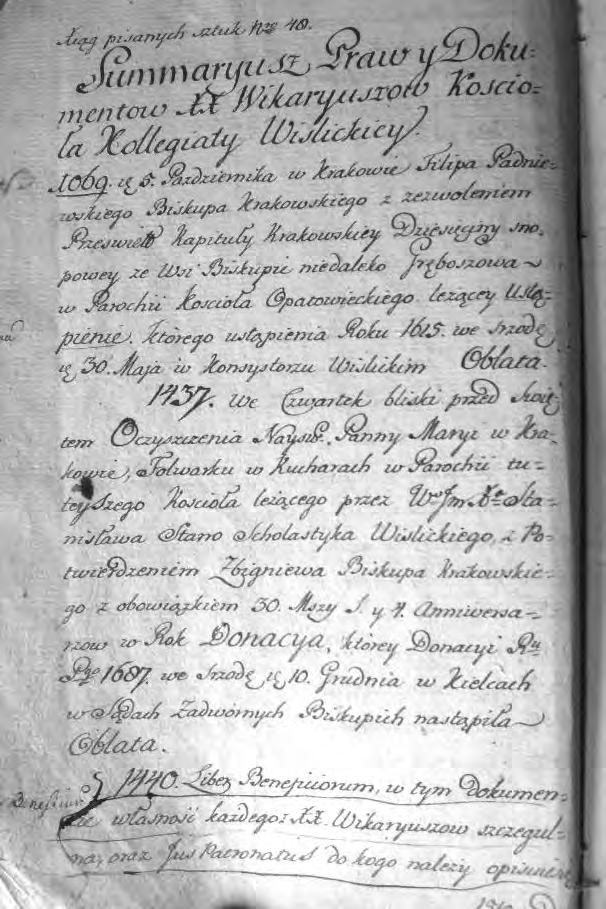 Xiąg pisanych sztuk Nro 48.
Summaryusz Praw y Doku-
mentow XX Wikaryuszow Koscio-
ła Kollegiaty Wislickiey.
1069. ię 5. Pazdziernika w Krakowie Filipa Padnie-
wskiego Biskupa Krakowskiego z zezwoleniem
Przeswiett Kapituły Krakowskiey Dziesięciny sno-
powey ze Wsi Biskupie niedaleko Gręboszowa
w Parochii Kościoła Opatowieckiego leżącey Ustą-
pienie. którego ustąpienia Roku 1615. we Srzodę
ię 30. Maja w Konsystorzu Wislickim Oblata.
1437. we Czwartek bliski przed Swię-
tem Oczyszczenia Nayśw. Panny Maryi w Kra-
kowie, Folwarku w Kucharach w Parochii tu-
teyszego Kościoła leżącego przez W. Jm Xa Sta-
nisława Stano Scholastyka Wislickiego, z Po-
twierdzeniem Zbigniewa Biskupa Krakowskie-
go z obowiązkiem 30. Mszy S. y 4. Anniwersa-
rzow w Rok Donacya, ktorey Donacyi Ru
Pgo 1687. we Srzodę ię 10. Grudnia w Kielcach
w Sądach Zadwornych Biskupich nastąpiła
Oblata.
1440. Liber Beneficiorum, w tym dokumen-
cie własność każdego z XX. Wikaryuszow szczegul-
na, oraz Jus Patronatus do kogo należy opisuie